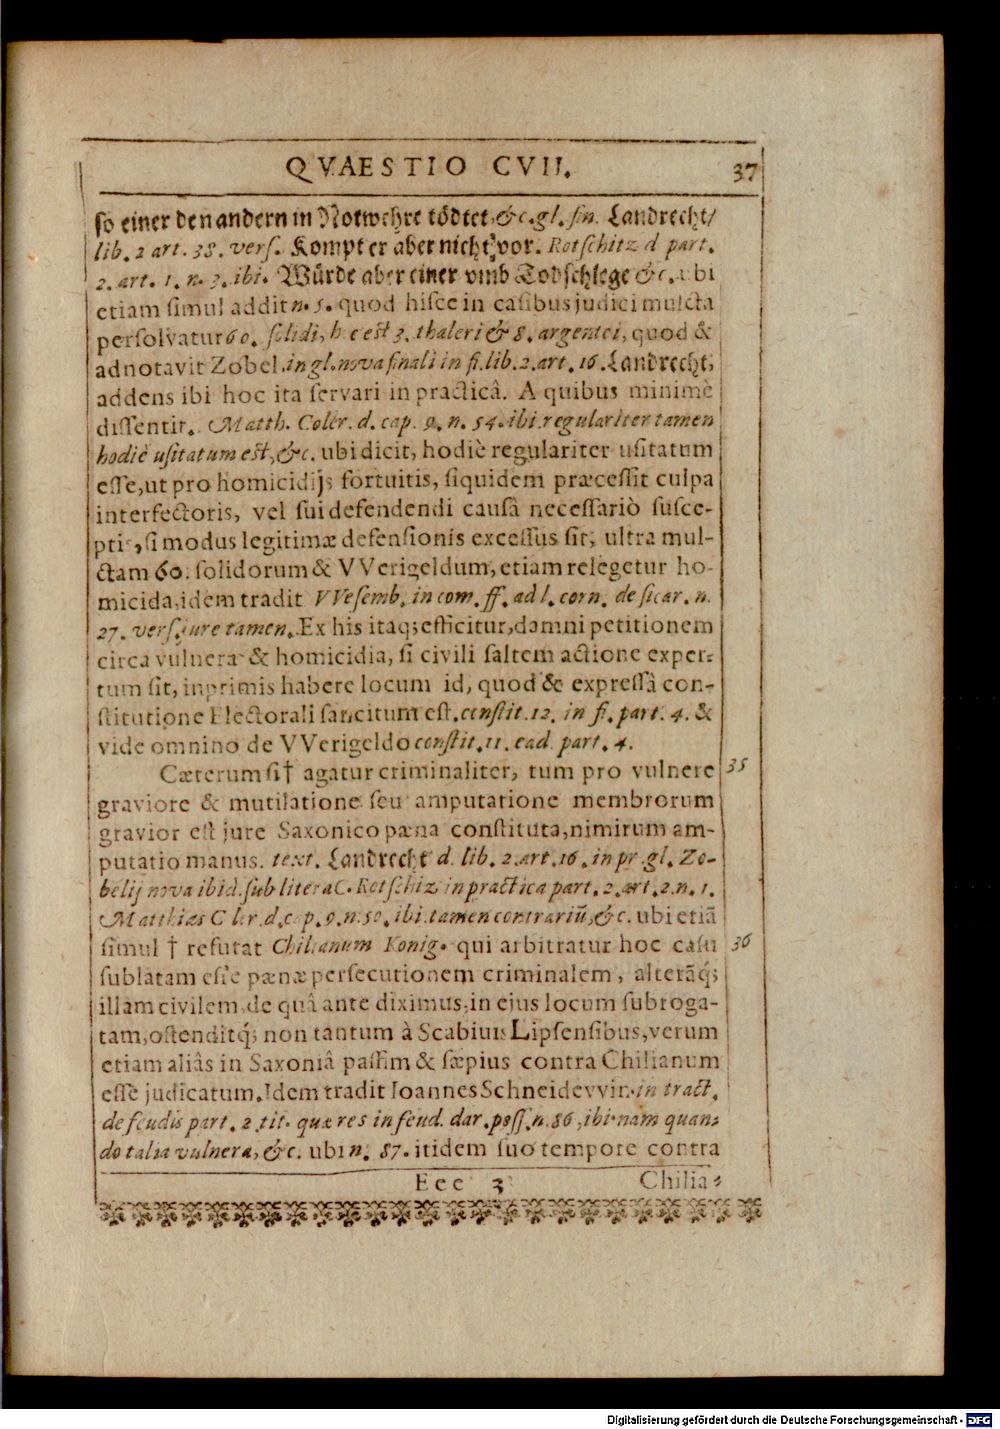 QVAESTIO CVII. 37
so einer den andern in Notwehre tödtet, &c. gl. fin. Landrecht/
lib. 2 art. 38. vers. Kompt er aber nicht vor. Rotschitz d part.
2. art. 1. n. 3. ibi. Würde aber einer vmb Todschlege &c. ubi
etiam simul addit n. 5. quod hisce in casibus judici mulcta
persolvatur 60. solidi, h e est 3. thaleri & 8. argentei, quod &
adnotavit Zobel. in gl. nova finali in fi. lib. 2. art. 16. Landrecht,
addens ibi hoc ita servari in practicâ. A quibus minimè
dissentit. Matth. Coler. d. cap. 9. n. 54. ibi. regulariter tamen
hodiè usitatum est, &c. ubi dicit, hodiè regulariter usitatum
esse, ut pro homicidijs fortuitis, siquidem præcessit culpa
interfectoris, vel sui defendendi causâ necessariò susce-
ptis, si modus legitimæ defensionis excessus sit, ultra mul-
ctam 60. solidorum & VVerigeldum, etiam relegetur ho-
micida, idem tradit VVesemb. in com. ff. ad l. corn. de sicar. n.
27. vers. jure tamen. Ex his itaq; efficitur, damni petitionem
circa vulnera & homicidia, si civili saltem actione exper-
tum sit, inprimis habere locum id, quod & expressâ con-
stitutione Electorali sancitum est. constit. 12. in fi. part. 4. &
vide omnino de VVerigeldo constit. 11. ead. part. 4.
Cæterum si† agatur criminaliter, tum pro vulnere 35
graviore & mutilatione seu amputatione membrorum
gravior est jure Saxonico pæna constituta, nimirum am-
putatio manus. text. Landrecht d. lib. 2. art. 16. in pr. gl. Zo-
belij nova ibid. sub litera C. Rotschiz. in practica part. 2. art. 2. n. 1.
Matthias C ler. d. c p. 9. n. 50. ibi. tamen contrariū, &c. ubi etiā
simul † refutat Chilianum Konig. qui arbitratur hoc casu 36
sublatam esse pænæ persecutionem criminalem, alterāq;
illam civilem, de quâ ante diximus, in ejus locum subroga-
tam, ostenditq; non tantum à Scabinis Lipsensibus, verum
etiam aliâs in Saxoniâ passim & sæpius contra Chilianum
esse judicatum. Idem tradit Ioannes Schneidevvin. in tract.
de feudis part. 2. tit. quæ res in feud. dar. poss. n. 86, ibi. nam quan-
do talia vulnera, &c. ubi n. 87. itidem suo tempore contra
Eee 3 Chilia-
Digitalisierung gefördert durch die Deutsche Forschungsgemeinschaft - DFG